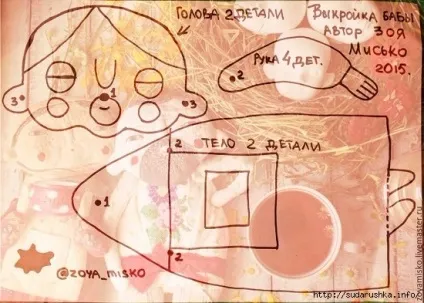 Голова 2 детали
Выкройка бабы
Автор Зоя
Мисько
2015.
Рука 4 дет.
2
1
3
3
2
Тело 2 детали
1
2
@zoya_misko
http://sudarushka.info/
zoyamisko.livemaster.ru